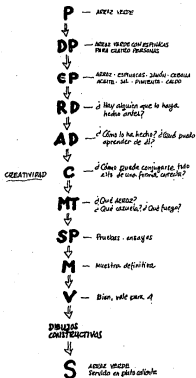 P – ARROZ VERDE
DP – ARROZ VERDE CON ESPINACAS
PARA CUATRO PERSONAS
EP – ARROZ - ESPINACAS - JAMÓN - CEBOLLA
ACEITE - SAL - PIMIENTA - CALDO
RD – ¿Hay alguien que lo haya
hecho antes?
AD – ¿Cómo lo ha hecho? ¿Qué puedo
aprender de él?
CREATIVIDAD
C – ¿Cómo puede conjugarse todo
esto de una forma correcta?
MT – ¿Qué ARROZ?
¿Qué cazuela? ¿Qué fuego?
SP – Pruebas - ensayos
M – Muestra definitiva
V – Bien, vale para 4
DIBUJOS
CONSTRUCTIVOS
S – ARROZ VERDE
Servido en plato caliente